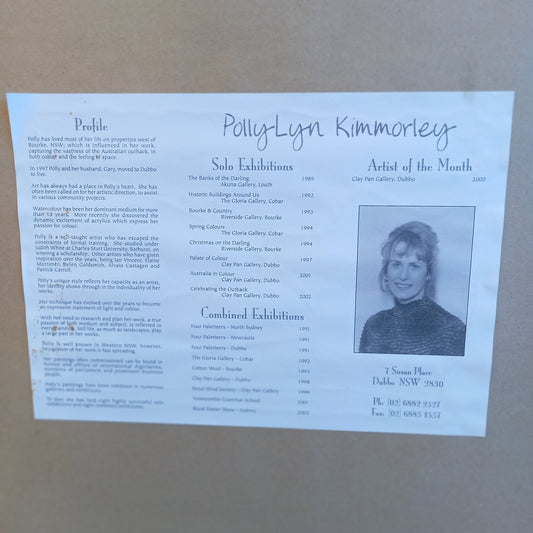 Profile
Polly has lived most of her life on properties west of
Bourke, NSW; which is influenced in her work,
capturing the vastness of the Australian outback, in
both colour and the feeling of space.
In 1997 Polly and her husband, Gary, moved to Dubbo
to live.
Art has always had a place in Polly's heart. She has
often been called on for her artistic direction, to assist
in various community projects.
Watercolour has been her dominant medium for more
than 15 years. More recently she discovered the
dynamic excitement of acrylics which express her
passion for colour.
Polly is a self-taught artist who has escaped the
constraints of formal training. She studied under
Judith White at Charles Sturt University, Bathurst, on
winning a scholarship. Other artists who have given
inspiration over the years, being Jan Vincent, Elaine
Mortimfit; Belen, Goldsmith, Alvaro Castagen and
Patrick Carroll.
Polly's unique style reflects her capacity as an artist,
her identity shows through in the individuality of her
works.
Her technique has evolved over the years to become
an expressive statement of light and colour.
With her need to research and plan her work, a true
passion of both medium and subject, is reflected in
every painting. Still life, as much as landscapes, play
a large part in her works.
Polly is well known in Western NSW, however,
perception of her work is fast spreading.
Her paintings often commissioned can be found in
homes and offices of international dignitaries,
members of parliament and prominent business
people.
Polly's paintings have been exhibited in numerous
galleries and exhibitions.
To date she has held eight highly successful solo
exhibitions and eight combined exhibitions.
PollyLyn Kimmorley
Solo Exhibitions
The Banks of the Darling 1989
Akuna Gallery, Louth
Historic Buildings Around Us 1992
The Gloria Gallery, Cobar
Bourke & Country 1993
Riverside Gallery, Bourke
Spring Colours 1994
The Gloria Gallery, Cobar
Christmas on the Darling 1994
Riverside Gallery, Bourke
Palate of Colour 1997
Clay Pan Gallery, Dubbo
Australia in Colour 2001
Clay Pan Gallery, Dubbo
Celebrating the Outback
Clay Pan Gallery, Dubbo 2002
Combined Exhibitions
Four Paletteers - North Sydney 1991
Four Paletteers - Newcastle 1991
Four Paletteers - Dubbo 1991
The Gloria Gallery - Cobar 1992
Cotton Wool - Bourke 1995
Clay Pan Gallery - Dubbo 1998
Royal Blind Society - Clay Pan Gallery 1999
Toowoomba Grammar School 2001
Royal Easter Show - Sydney 2002
Artist of the Month
Clay Pan Gallery, Dubbo 2000
7 Susan Place
Dubbo NSW 2830
Ph: (02) 6882 2527
Fax: (02) 6885 4557